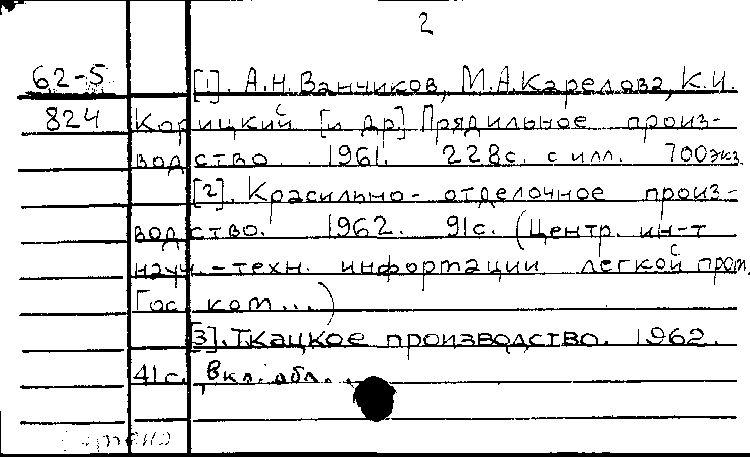 2
62-5 [1]. А.Н.Ванчиков, М.А.Карелова, К.И.
824 Корицкий [и др] Прядильное произ-
водство 1961. 228с. с илл. 700экз
[2]. Красильно-отделочное произ-
водство. 1962. 91с. (Центр. ин-т
науч.-техн. информации легкой пром.
Гос ком...)
[3]. Ткацкое производство. 1962.
41с. Вкл. обл...